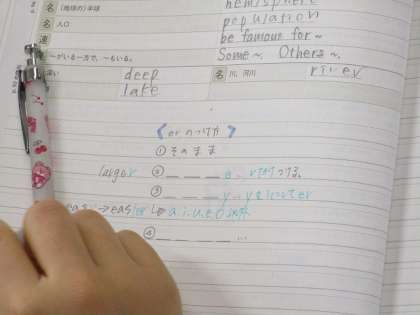 hemisphere
名 (地球の)半球
名 人口 population
連 be famous for ~
~がいる一方で、~もいる。 Some ~. Others ~.
深い deep 名 川、河川 river
lake
《er のつけ方》
① そのまま
larger ② ____e rだけつける。
③ ____y yをiにかえてer
→easier a.i.u.e.o以外
④ ____ ...